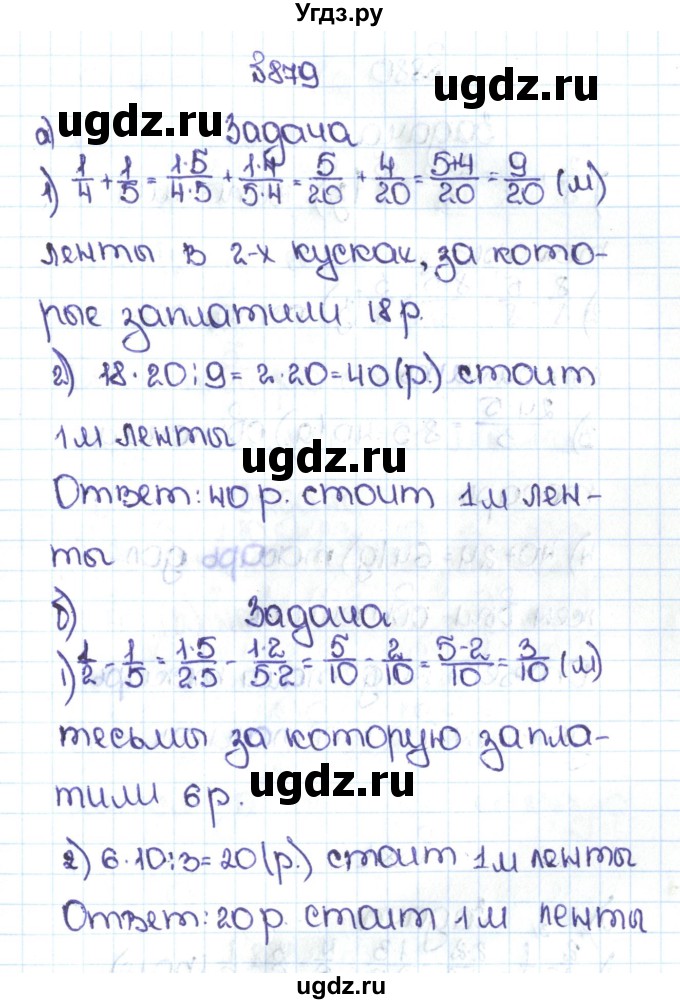 Угдз.ру
№879
ugdz.ru
ugdz.ru
а) Задача
1) 1/4 + 1/5 = 1·5/4·5 + 1·4/5·4 = 5/20 + 4/20 = 5+4/20 = 9/20 (м)
ленты в 2-х кусках, за кото-
рые заплатили 18 р.
2) 18·20:9 = 2·20 = 40 (р.) стоит
1 м ленты
ugdz.ru
Ответ: 40 р. стоит 1 м лен-
ты
б) Задача
ugdz.ru
1) 1/2 - 1/5 = 1·5/2·5 - 1·2/5·2 = 5/10 - 2/10 = 5-2/10 = 3/10 (м)
тесьмы за которую запла-
тили 6 р.
ugdz.ru
2) 6·10:3 = 20 (р.) стоит 1 м ленты
Ответ: 20 р. стоит 1 м ленты
ugdz.ru